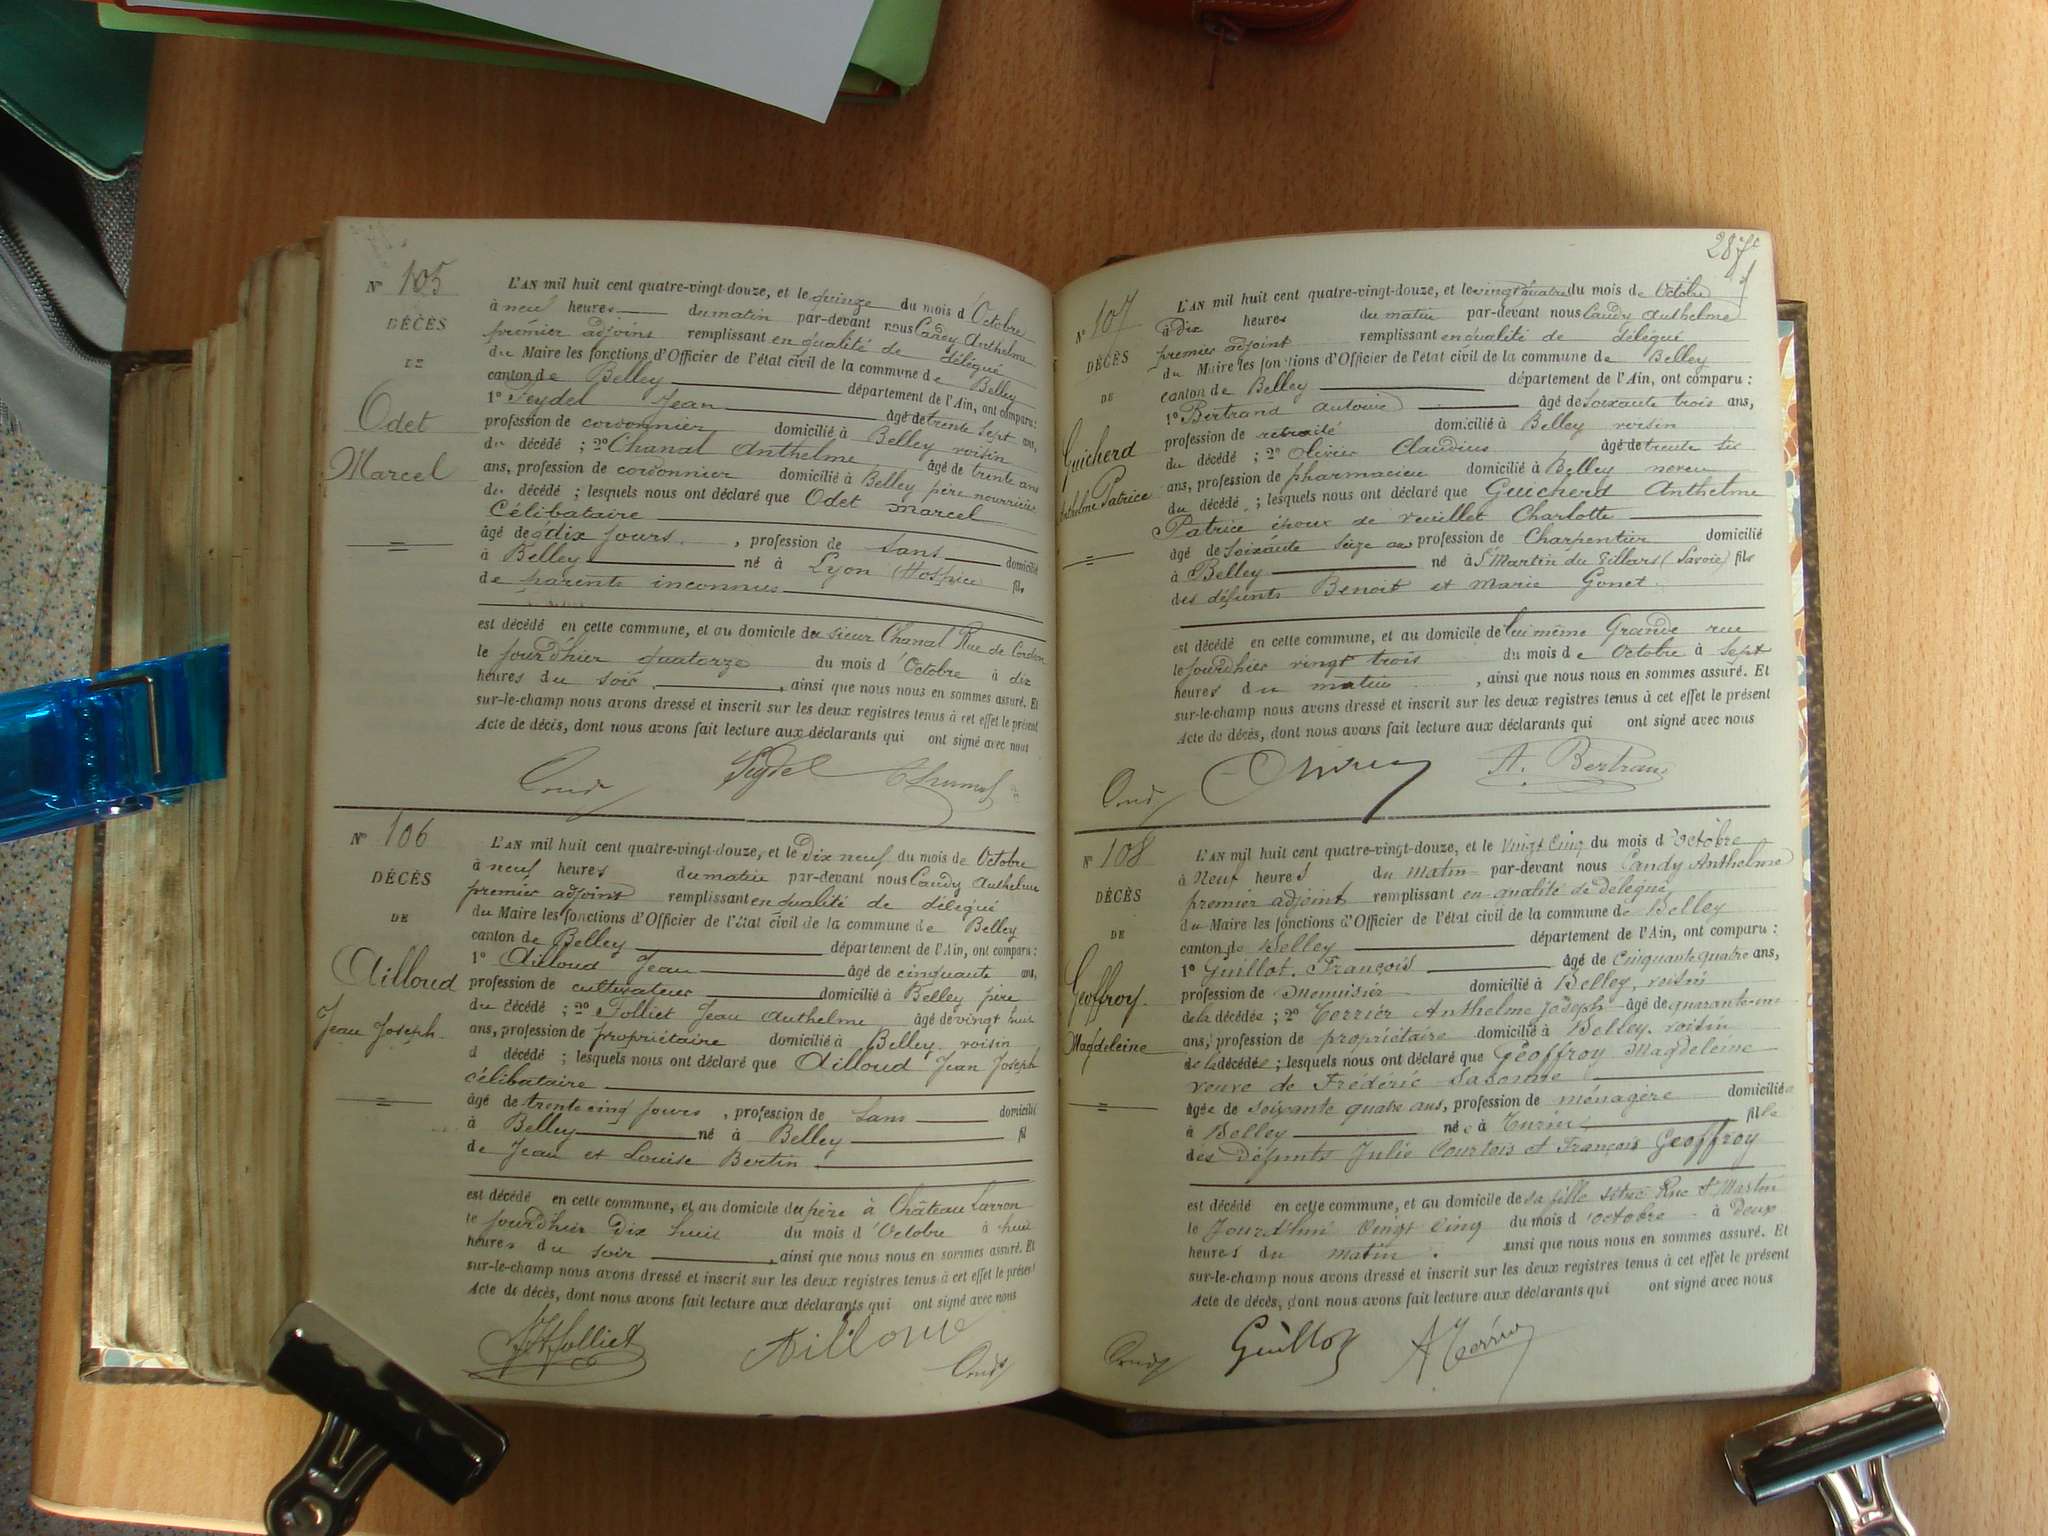 N° 105
DÉCÈS
DE
Odet
Marcel
L'AN mil huit cent quatre-vingt-douze, et le quinze du mois d'Octobre
à neuf heures du matin par-devant nous Candy Anthelme
premier adjoint remplissant en qualité de délégué
du Maire les fonctions d'Officier de l'état civil de la commune de Belley
canton de Belley département de l'Ain, ont comparu:
1° Peydel Jean âgé de trente sept ans,
profession de cordonnier domicilié à Belley voisin
du décédé ; 2° Chanal Anthelme âgé de trente ans
ans, profession de cordonnier domicilié à Belley père nourricier
du décédé ; lesquels nous ont déclaré que Odet Marcel
Célibataire
âgé de dix jours , profession de sans domicilié
à Belley né à Lyon (Hospice fils
de parents inconnus
est décédé en cette commune, et au domicile du sieur Chanal Rue de Cordon
le jour d'hier quatorze du mois d'Octobre à dix
heures du soir , ainsi que nous nous en sommes assuré. Et
sur-le-champ nous avons dressé et inscrit sur les deux registres tenus à cet effet le présent
Acte de décès, dont nous avons fait lecture aux déclarants qui ont signé avec nous
Candy Peydel Chanal
N° 106
DÉCÈS
DE
Ailloud
Jean Joseph
L'AN mil huit cent quatre-vingt-douze, et le Dix neuf du mois de Octobre
à neuf heures du matin par-devant nous Candy Anthelme
premier adjoint remplissant en qualité de délégué
du Maire les fonctions d'Officier de l'état civil de la commune de Belley
canton de Belley département de l'Ain, ont comparu:
1° Ailloud Jean âgé de cinquante ans,
profession de cultivateur domicilié à Belley père
du décédé ; 2° Tolliet Jean Anthelme âgé de vingt huit
ans, profession de propriétaire domicilié à Belley voisin
d décédé ; lesquels nous ont déclaré que Ailloud Jean Joseph
célibataire
âgé de trente cinq jours , profession de sans domicilié
à Belley né à Belley fil
de Jean et Louise Bertin
est décédé en cette commune, et au domicile du père à Château Larron
le jour d'hier Dix huit du mois d'Octobre à huit
heures du soir , ainsi que nous nous en sommes assuré. Et
sur-le-champ nous avons dressé et inscrit sur les deux registres tenus à cet effet le présent
Acte de décès, dont nous avons fait lecture aux déclarants qui ont signé avec nous
JATolliet Ailloud Candy
287
N° 107
DÉCÈS
DE
Guicherd
Anthelme Patrice
L'AN mil huit cent quatre-vingt-douze, et le vingt quatre du mois de Octobre
à dix heures du matin par-devant nous Candy Anthelme
premier adjoint remplissant en qualité de délégué
du Maire les fonctions d'Officier de l'état civil de la commune de Belley
canton de Belley département de l'Ain, ont comparu :
1° Bertrand Antoine âgé de soixante trois ans,
profession de retraité domicilié à Belley voisin
du décédé ; 2° Olivier Claudius âgé de trente six
ans, profession de pharmacien domicilié à Belley neveu
du décédé ; lesquels nous ont déclaré que Guicherd Anthelme
Patrice époux de veuillet Charlotte
âgé de soixante seize ans profession de Charpentier domicilié
à Belley né à St Martin du Villars (Savoie) fils
des défunts Benoit et Marie Gonet
est décédé en cette commune, et au domicile de lui même Grande rue
le jour d'hier vingt trois du mois de Octobre à sept
heures du matin , ainsi que nous nous en sommes assuré. Et
sur-le-champ nous avons dressé et inscrit sur les deux registres tenus à cet effet le présent
Acte de décès, dont nous avons fait lecture aux déclarants qui ont signé avec nous
Candy A. Bertrand
N° 108
DÉCÈS
DE
Geoffroy
Magdeleine
L'AN mil huit cent quatre-vingt-douze, et le Vingt Cinq du mois d'octobre
à Neuf heures du Matin par-devant nous Candy Anthelme
premier adjoint remplissant en qualité de Délégué
du Maire les fonctions d'Officier de l'état civil de la commune de Belley
canton de Belley département de l'Ain, ont comparu :
1° Guillot François âgé de Cinquante quatre ans,
profession de Menuisier domicilié à Belley, voisin
de la décédée ; 2° Terrier Anthelme Joseph âgé de quarante-un
ans, profession de propriétaire domicilié à Belley, voisin
de la décédée ; lesquels nous ont déclaré que Geoffroy Magdeleine
veuve de Frédéric
âgée de soixante quatre ans, profession de ménagère domiciliée
à Belley née à Turin fille
des Défunts Julie Courtois et François Geoffroy
est décédé en cette commune, et au domicile de sa fille située Rue St Martin
le Jourd'hui Vingt Cinq du mois d'octobre à Deux
heures du matin . ainsi que nous nous en sommes assuré. Et
sur-le-champ nous avons dressé et inscrit sur les deux registres tenus à cet effet le présent
Acte de décès, dont nous avons fait lecture aux déclarants qui ont signé avec nous
Candy Guillot A Terrier